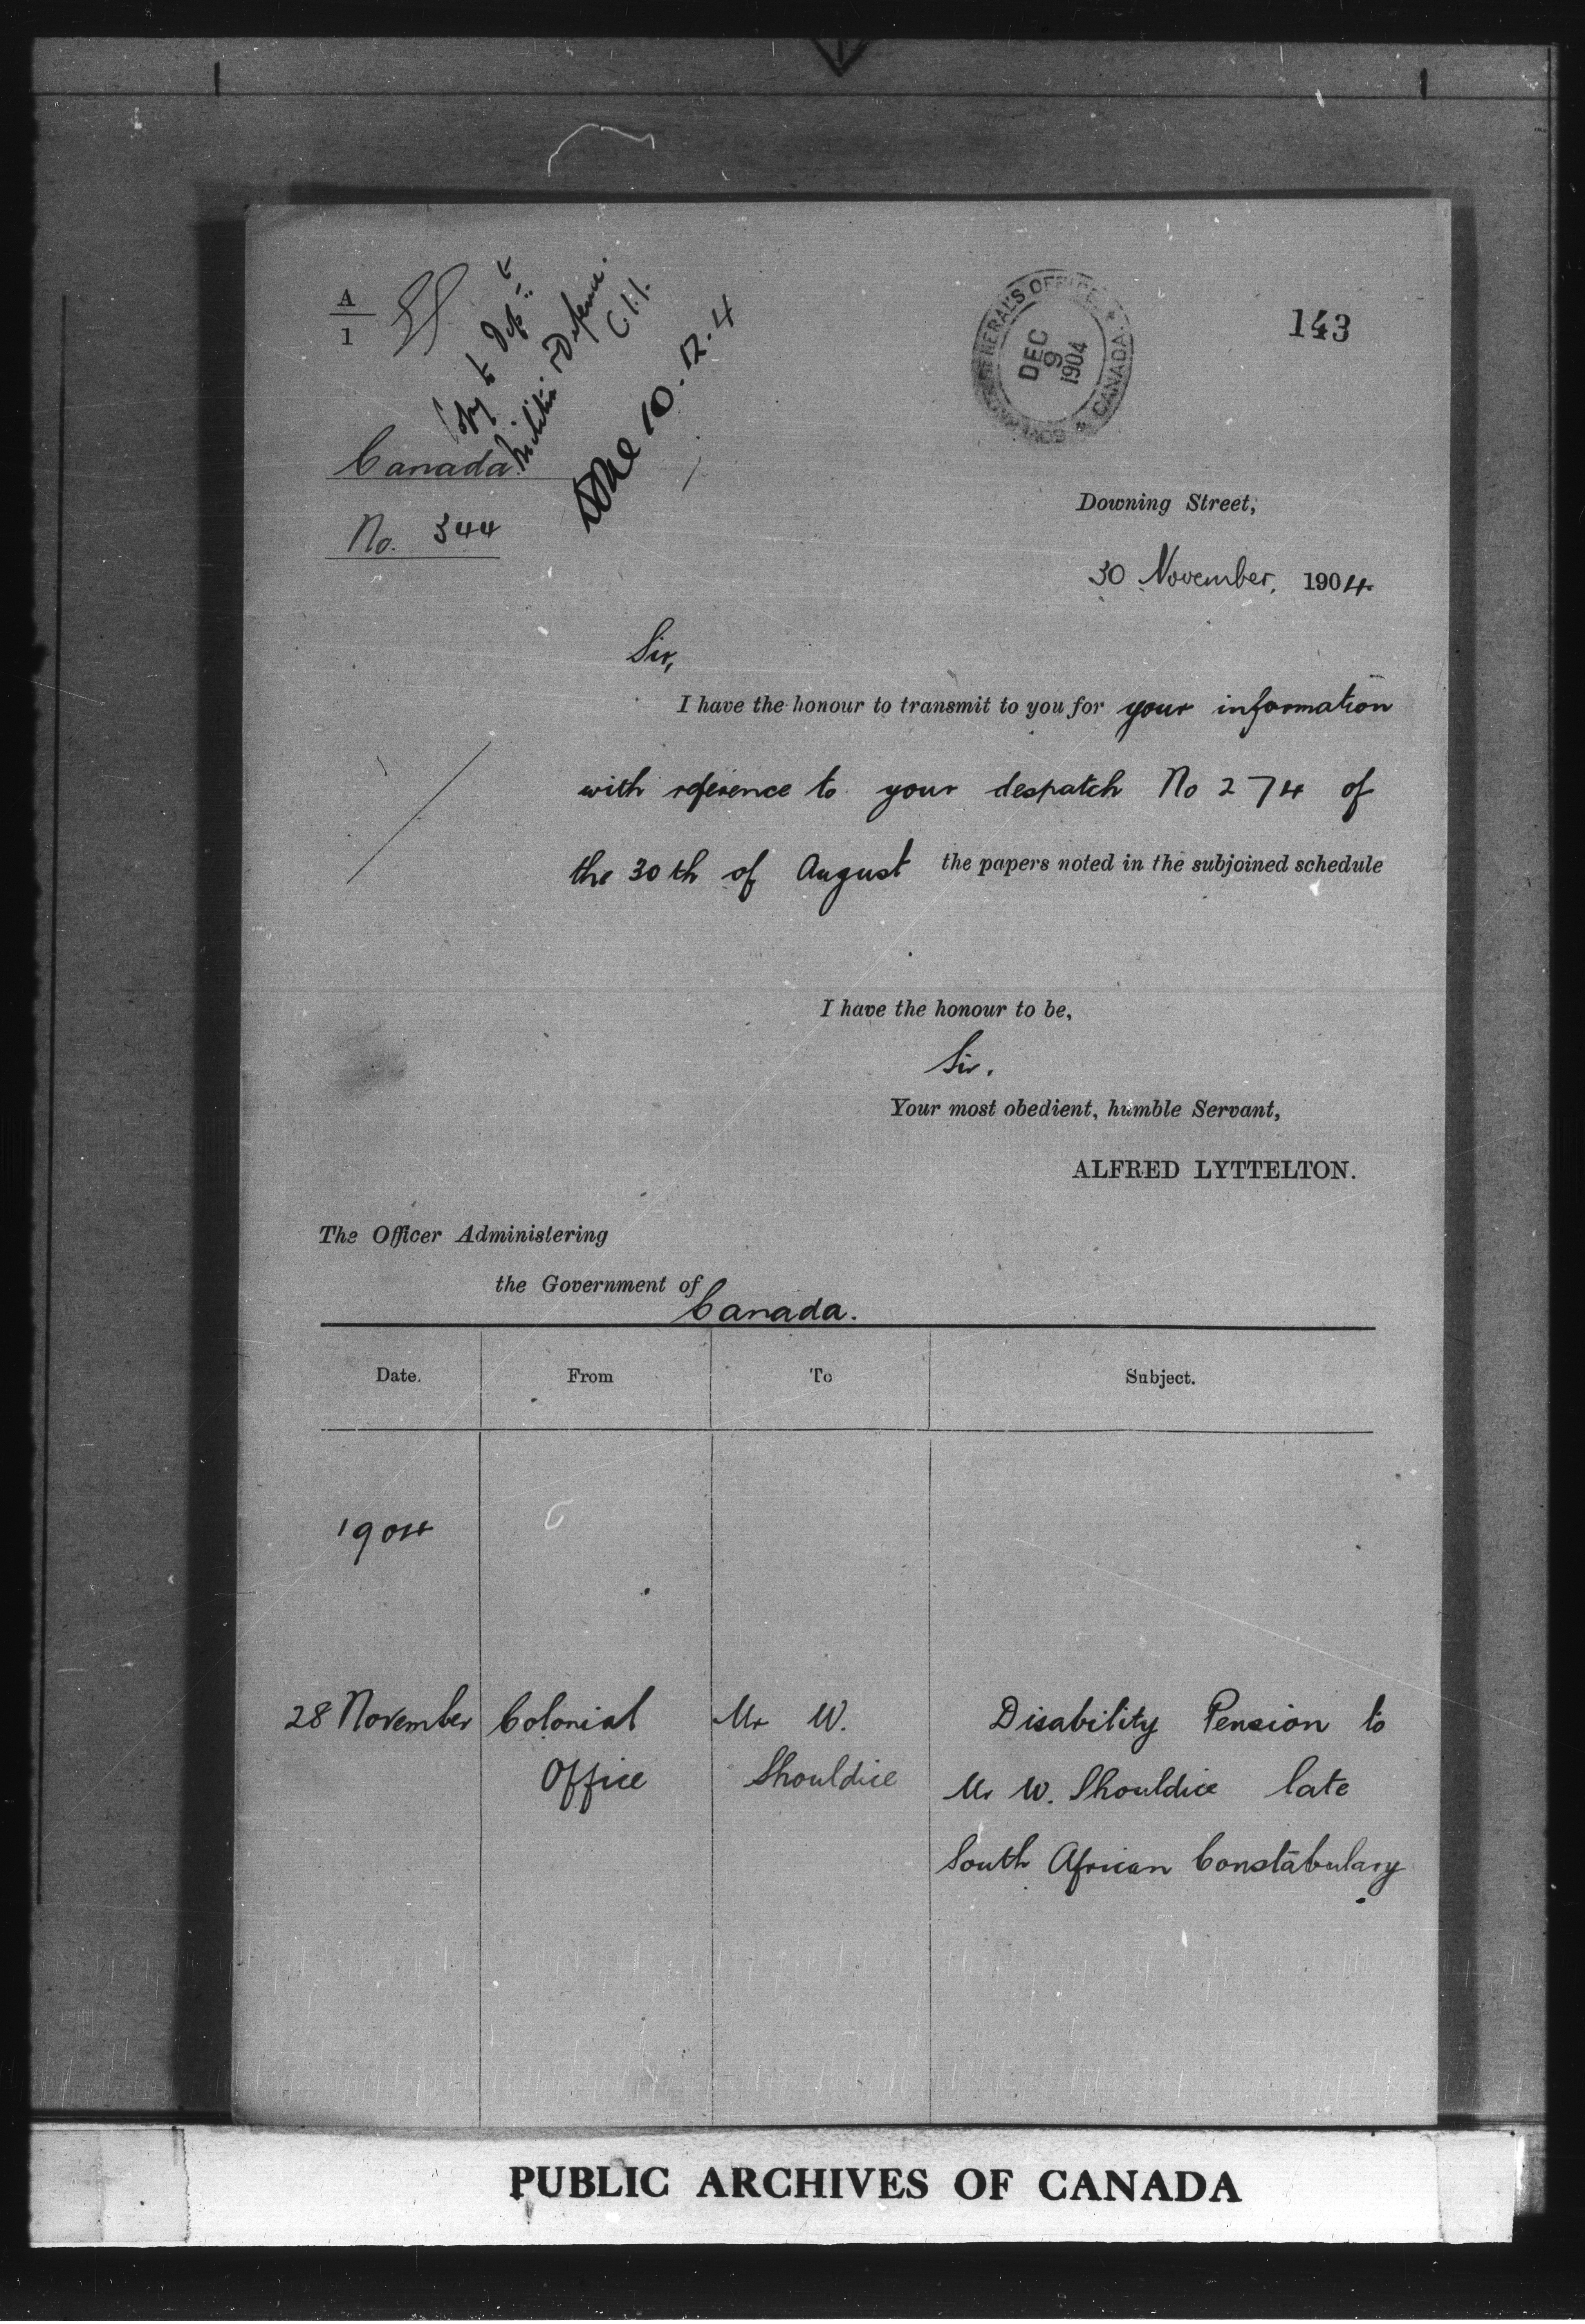 A
1
Copy to Dept of
Militia & Defence.
Done 10.12.4
GENERAL'S OFFICE
DEC
9
1904
CANADA
143
Canada.
No. 344
Downing Street,
30 November, 1904.
Sir,
I have the honour to transmit to you for your information
with reference to your despatch No 274 of
the 30th of August the papers noted in the subjoined schedule
I have the honour to be,
Sir.
Your most obedient, humble Servant,
ALFRED LYTTELTON.
The Officer Administering
the Government of
Canada.
Date. From To Subject.
1904
28 November Colonial Mr W. Disability Pension to
Office Shouldice Mr W. Shouldice late
South African Constabulary.
PUBLIC ARCHIVES OF CANADA